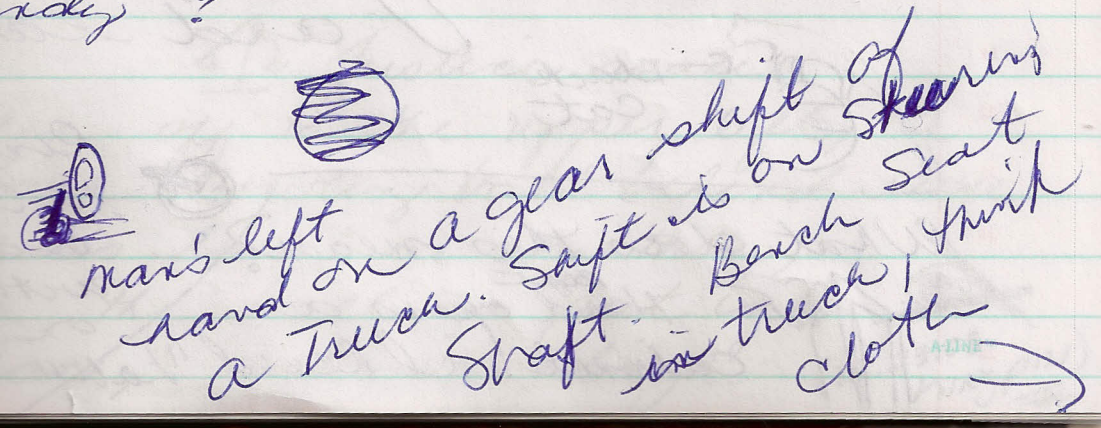 man's left
hand on a gear shift of
a Truck. Shift is on Stearing
Shaft. Bench Seat
in truck, think
cloth